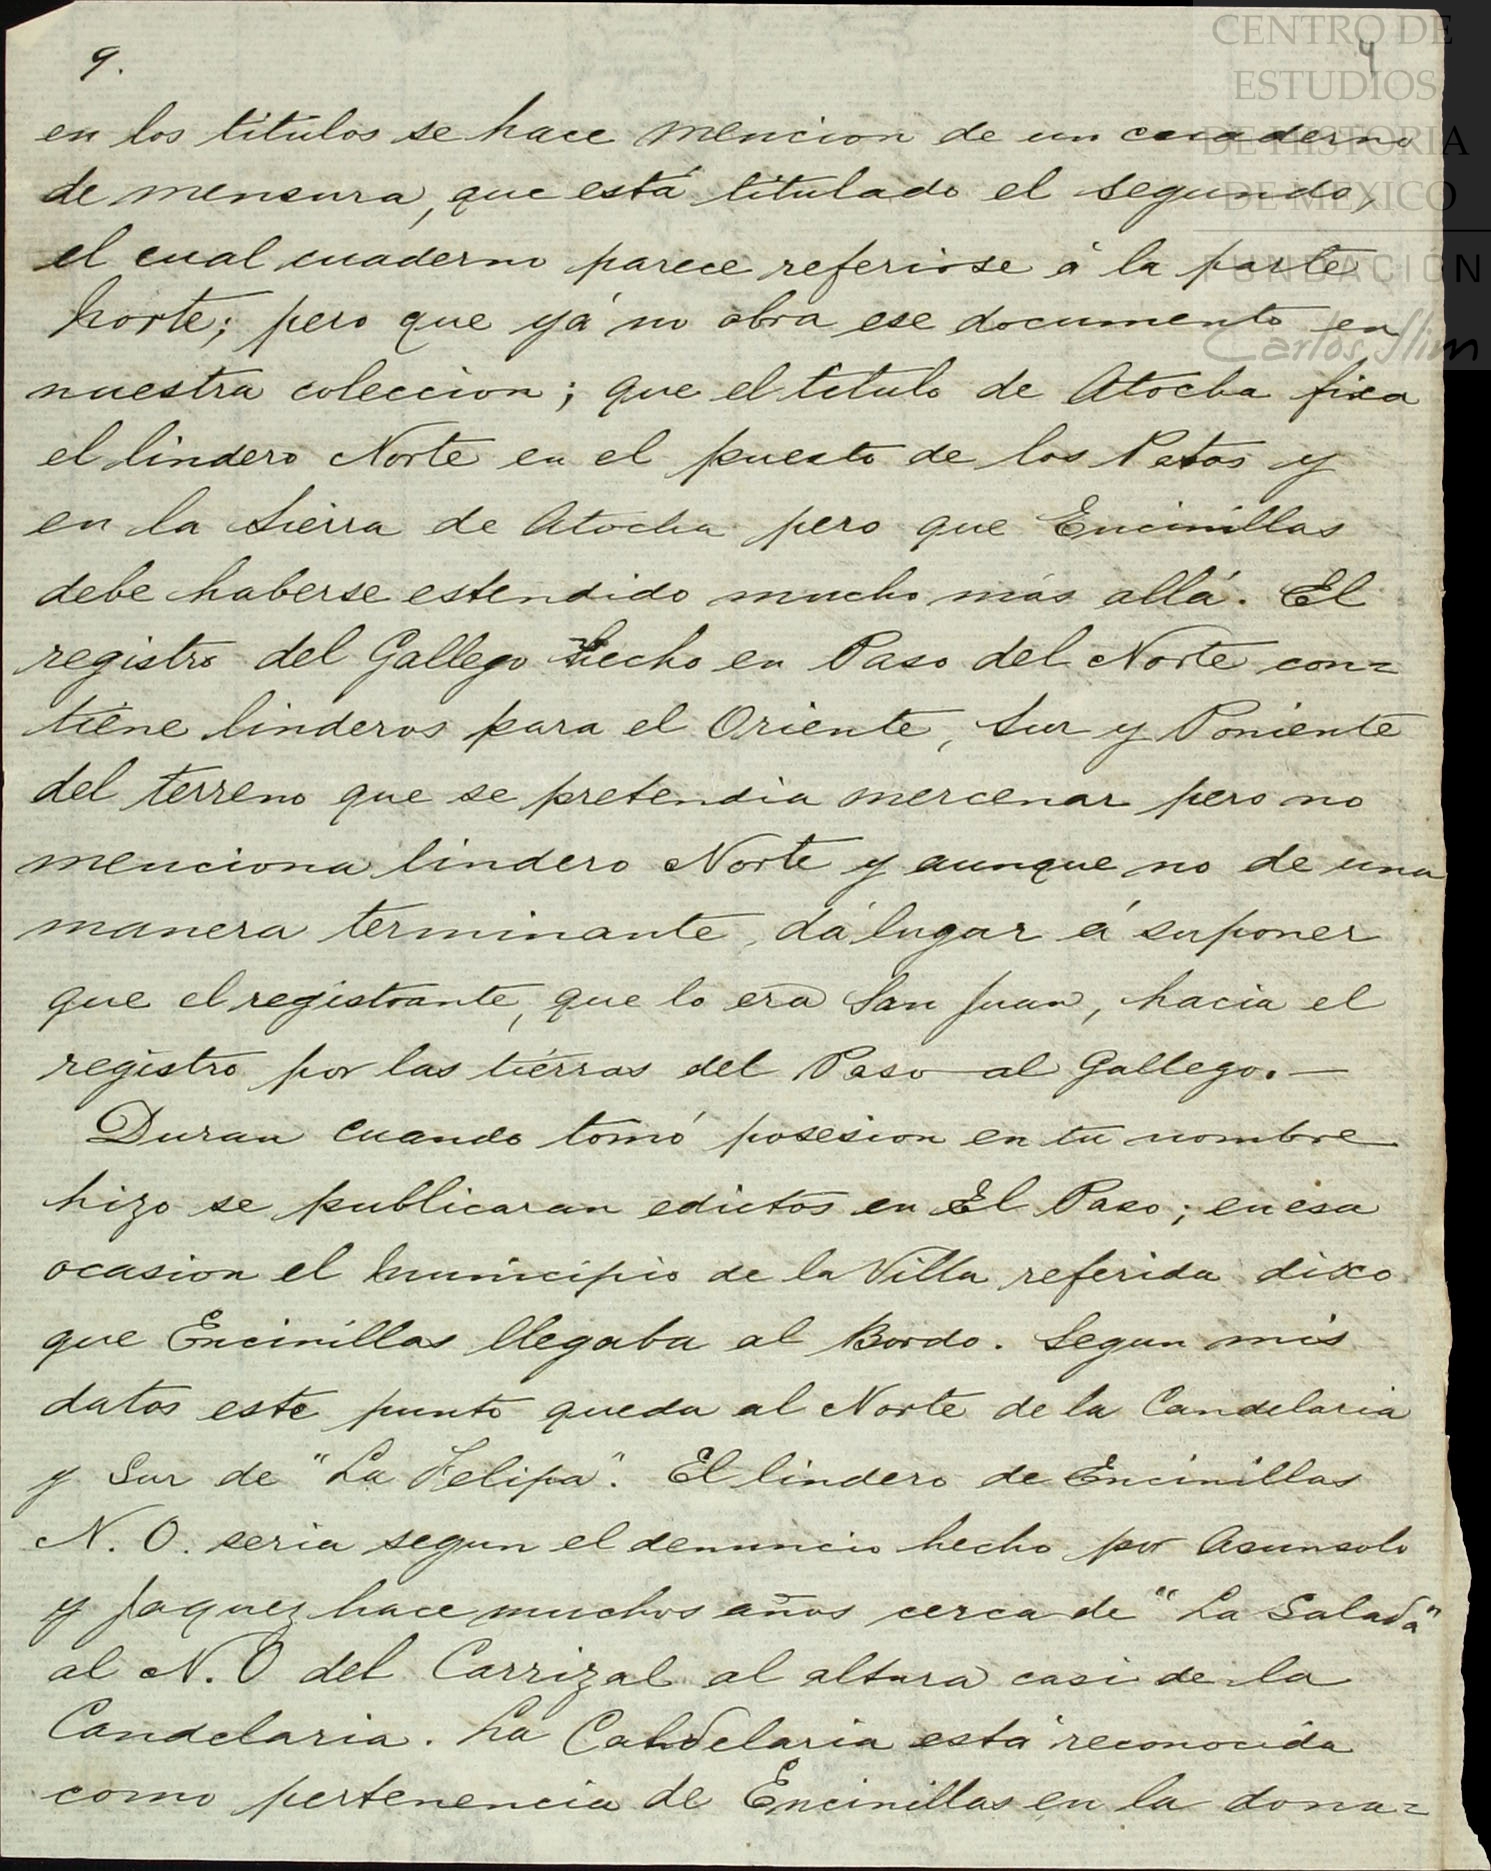 9.
4
CENTRO DE
ESTUDIOS
DE HISTORIA
DE MEXICO
FUNDACION
Carlos Slim
en los titulos se hace mencion de un cuaderno
de mensura, que está titulado el segundo,
el cual cuaderno parece referirse á la parte
Norte; pero que yá no obra ese documento en
nuestra coleccion; que el titulo de Atocha fixa
el lindero Norte en el puesto de los Patos y
en la Sierra de Atocha pero que Encinillas
debe haberse estendido mucho más allá. El
registro del Gallego hecho en Paso del Norte con=
tiene linderos para el Oriente, Sur y Poniente
del terreno que se pretendia mercenar pero no
menciona lindero Norte y aunque no de una
manera terminante, dá lugar á suponer
que el registrante, que lo era San Juan, hacia el
registro por las tierras del Paso al Gallego.—
Duran cuando tomó posesion en tu nombre
hizo se publicaran edictos en El Paso; en esa
ocasion el Municipio de la Villa referida dixo
que Encinillas llegaba al Bordo. Segun mis
datos este punto queda al Norte de la Candelaria
y Sur de "La Felipa". El lindero de Encinillas
N. O. seria segun el denuncio hecho por Asunsolo
y Jaquez hace muchos años cerca de "La Salada"
al N. O del Carrizal al altura casi de la
Candelaria. La Candelaria está reconocida
como pertenencia de Encinillas en la dona=